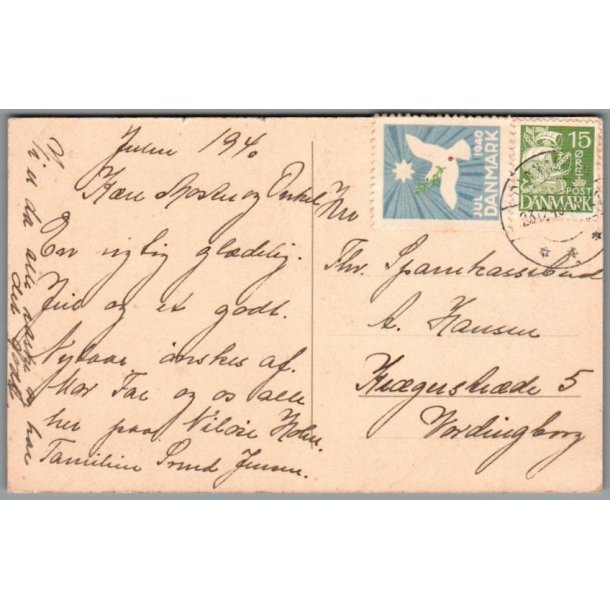 Julen 1940
Kære Moster og Onkel
En rigtig glædelig
Jul og et godt
Nytaar ønskes af
Mor Far og os alle
her paa
Familien Jensen.
Vi da alle har
det godt
JUL 1940
DANMARK
15
ØRE
POST
DANMARK
23.12.
Hr. Sparekassebud
A. Hansen
Krægerstræde 5
Vordingborg